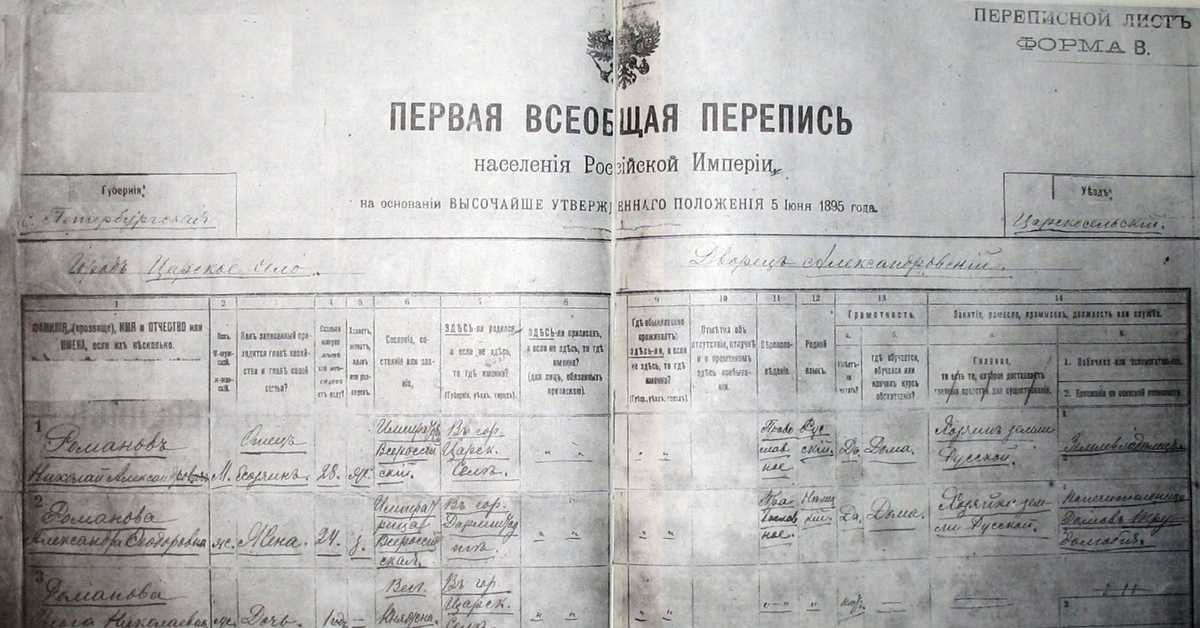 ПЕРЕПИСНОЙ ЛИСТЪ
ФОРМА В.
ПЕРВАЯ ВСЕОБЩАЯ ПЕРЕПИСЬ
населенія Россійской Имперіи,
на основаніи ВЫСОЧАЙШЕ УТВЕРЖДЕННАГО ПОЛОЖЕНІЯ 5 Іюня 1895 года.
Губернія:
С. Петербургская
Уѣздъ:
Царскосельскій.
Городъ Царское Село.
Дворецъ Александровскій.
1 2 3 4 5 6 7 8 9 10 11 12 13 14
ФАМИЛІЯ, (прозвище), ИМЯ и ОТЧЕСТВО или
ИМЕНА, если ихъ нѣсколько.
Полъ.
М-мужской.
Ж-женскій.
Какъ записанный приходится
главѣ хозяйства
и главѣ своей
семьи?
Сословіе, состояніе
или званіе.
ЗДѢСЬ-ли родился,
а если не здѣсь,
то гдѣ именно?
(Губернія, уѣздъ, городъ).
ЗДѢСЬ-ли приписанъ,
а если не здѣсь, то гдѣ
именно?
(для лицъ, обязанныхъ
припискою).
Гдѣ обыкновенно
проживаетъ:
здѣсь-ли, а если
не здѣсь, то гдѣ
именно?
(Губ., уѣздъ, городъ).
Отмѣтка объ
отсутствіи, отлучкѣ
и о временномъ
здѣсь пребываніи.
Вѣроисповѣданіе.
Родной
языкъ.
Грамотность.
а. б.
Умѣетъ-ли
читать?
гдѣ обучается,
обучался или
кончилъ курсъ
образованія?
Занятіе, ремесло, промыселъ, должность или служба.
а. б.
Главное,
то есть то, которое доставляетъ
главныя средства для существованія.
1. Побочное или вспомогательное.
2. Положеніе по воинской повинности.
1
Романовъ
Николай Александровичъ
М.
Отецъ
Хозяинъ.
28.
Императ.
Всероссійскій.
Въ гор.
Царск.
Селѣ.
" "
" "
Православное.
Русскій.
Да.
Дома.
Хозяинъ земли
Русской.
Землевладѣлецъ
2
Романова
Александра Ѳеодоровна
ж.
Жена.
24.
з.
Императрица
Всероссійская.
Въ гор.
Дармштадтѣ.
" "
" "
Православное.
Нѣмецкій.
Да.
Дома.
Хозяйка земли
Русской.
Домовъ Трудолюбія.
3
Романова
Ольга Николаевна
ж.
Дочь.
1 годъ
Вел.
Княжна.
Въ гор.
Царск.
Селѣ
" "
" "